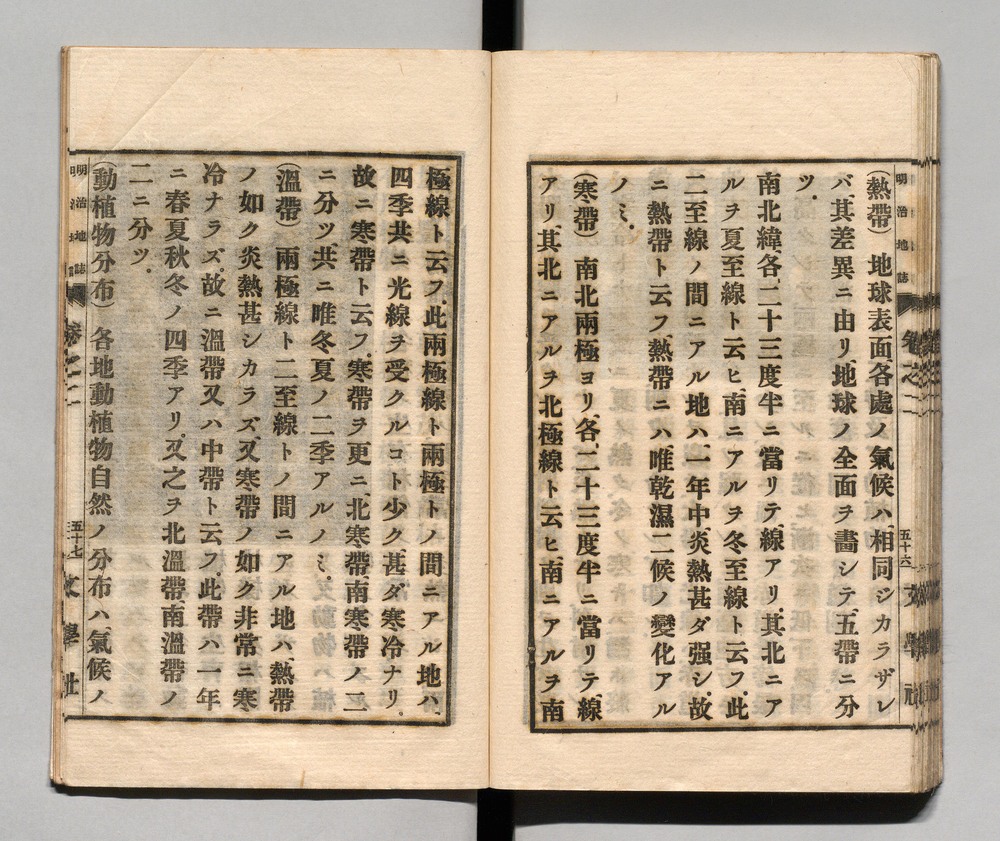 明治地誌 卷之二 五十六 文學社
(熱帶) 地球表面、各處ノ氣候ハ、相同ジカラザレ
バ、其差異ニ由リ、地球ノ全面ヲ畵シテ、五帶ニ分
ツ。
南北緯各、二十三度半ニ當リテ、線アリ、其北ニア
ルヲ夏至線ト云ヒ、南ニアルヲ冬至線ト云フ、此
二至線ノ間ニアル地ハ、一年中、炎熱甚ダ强シ、故
ニ熱帶ト云フ、熱帶ニハ、唯乾濕二候ノ變化アル
ノミ。
(寒帶) 南北兩極ヨリ、各、二十三度半ニ當リテ、線
アリ、其北ニアルヲ北極線ト云ヒ、南ニアルヲ南
極線ト云フ、此兩極線ト兩極トノ間ニアル地ハ、
四季共ニ光線ヲ受クルコト少ク、甚ダ寒冷ナリ。
故ニ寒帶ト云フ、寒帶ヲ更ニ、北寒帶南寒帶ノ二
ニ分ツ、共ニ唯冬夏ノ二季アルノミ。
(溫帶) 兩極線ト二至線トノ間ニアル地ハ、熱帶
ノ如ク炎熱甚シカラズ、又寒帶ノ如ク非常ニ寒
冷ナラズ、故ニ溫帶又ハ中帶ト云フ、此帶ハ一年
ニ春夏秋冬ノ四季アリ、又之ヲ北溫帶南溫帶ノ
二ニ分ツ。
(動植物分布) 各地動植物自然ノ分布ハ、氣候ノ
明治地誌 卷之二 五十七 文學社